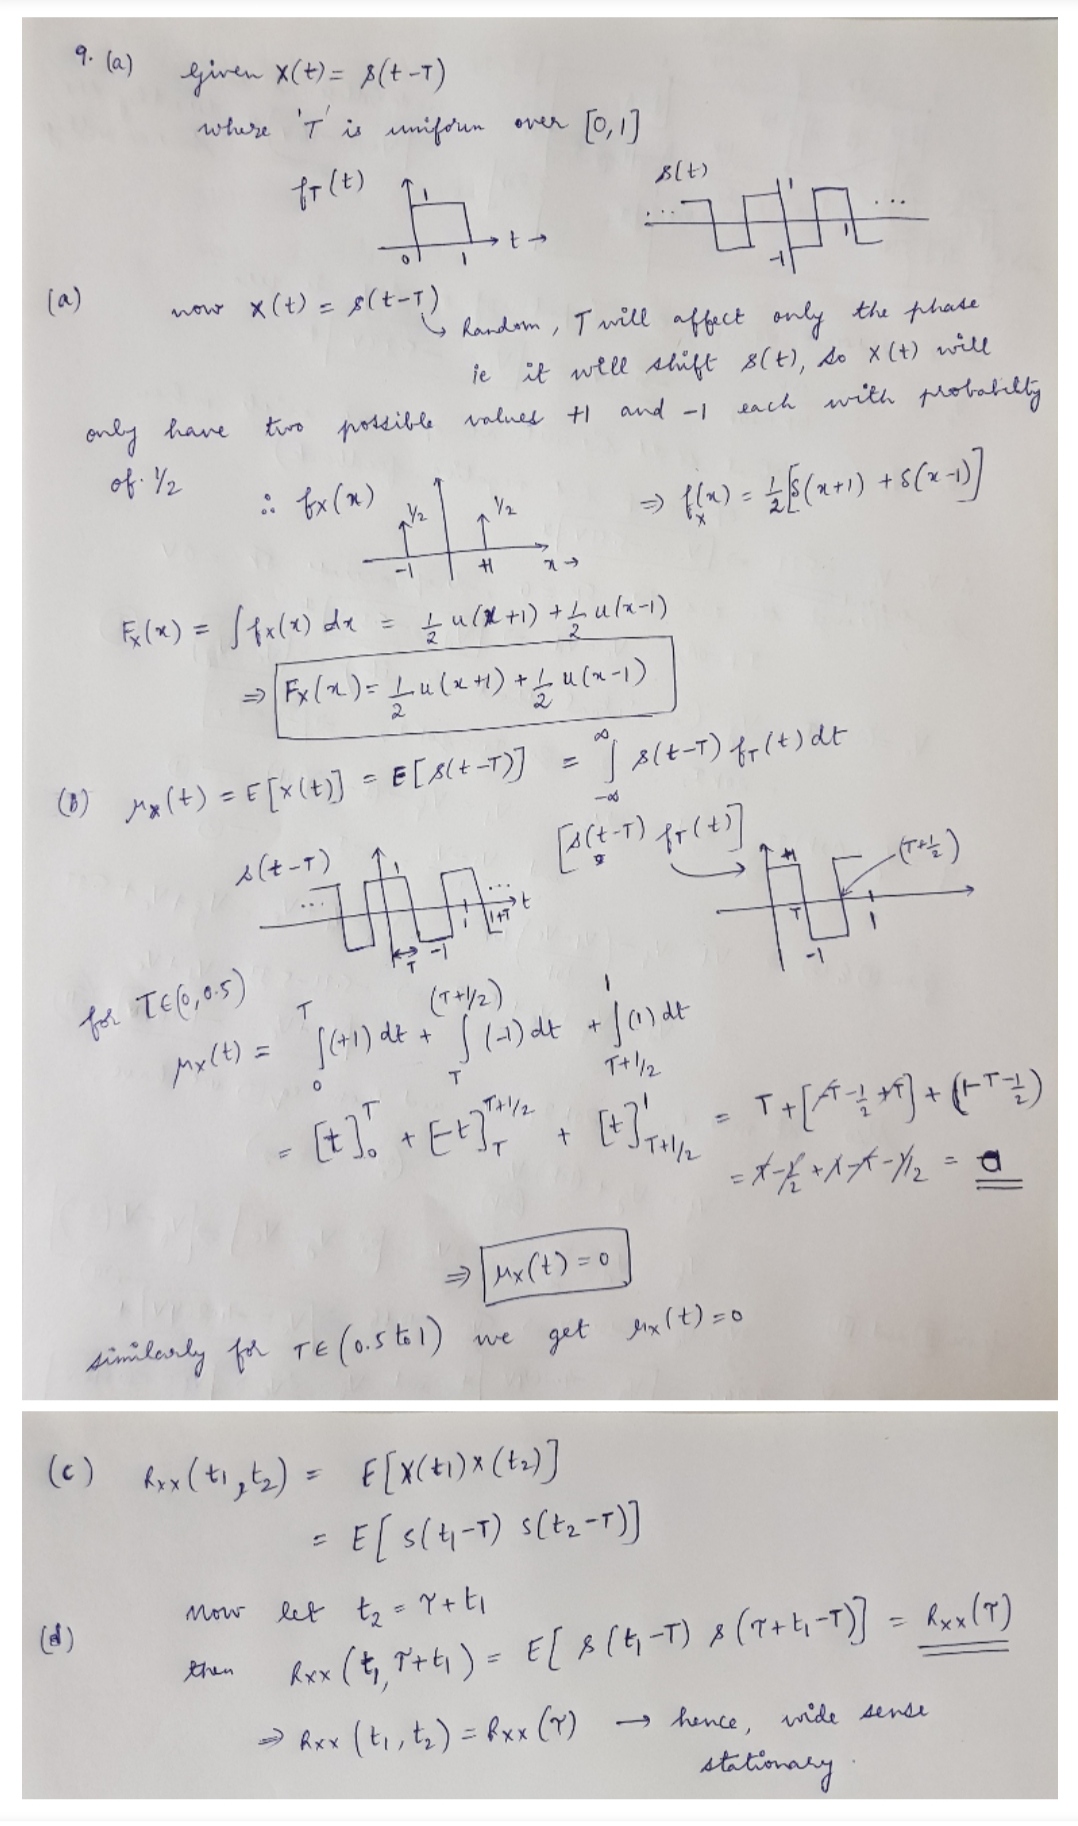 9. (a) Given X(t) = s(t-T)
where 'T' is uniform over [0,1]
f_T(t) 1 0 1 t→
s(t) ... 1 -1 1 ...
(a) now X(t) = s(t-T)
↳ Random, T will affect only the phase
ie it will shift s(t), so X(t) will
only have two possible values +1 and -1 each with probabilty
of 1/2 ∴ f_X(x) 1/2 1/2 -1 +1 x→ ⇒ f_X(x) = 1/2[δ(x+1) + δ(x-1)]
F_X(x) = ∫f_X(x) dx = 1/2 u(x+1) + 1/2 u(x-1)
⇒ F_X(x) = 1/2 u(x+1) + 1/2 u(x-1)
(b) μ_X(t) = E[X(t)] = E[s(t-T)] = ∫_{-∞}^{∞} s(t-T) f_T(t) dt
s(t-T) ... 1 T -1 1 1+T ... t
[s(t-T) f_T(t)] +1 T -1 1 (T+1/2)
for T∈(0,0.5)
μ_X(t) = ∫_0^T (+1) dt + ∫_T^{(T+1/2)} (-1) dt + ∫_{T+1/2}^1 (1) dt
= [t]_0^T + [-t]_T^{T+1/2} + [t]_{T+1/2}^1 = T + [-T-1/2+T] + (1-T-1/2)
= T-1/2+1-T-1/2 = 0
⇒ μ_X(t) = 0
similarly for T∈(0.5 to 1) we get μ_X(t) = 0
(c) R_XX(t1, t2) = E[X(t1) X(t2)]
= E[s(t1-T) s(t2-T)]
Now let t2 = τ+t1
(d) then R_XX(t1, τ+t1) = E[s(t1-T) s(τ+t1-T)] = R_XX(τ)
⇒ R_XX(t1, t2) = R_XX(τ) → hence, wide sense
stationary.